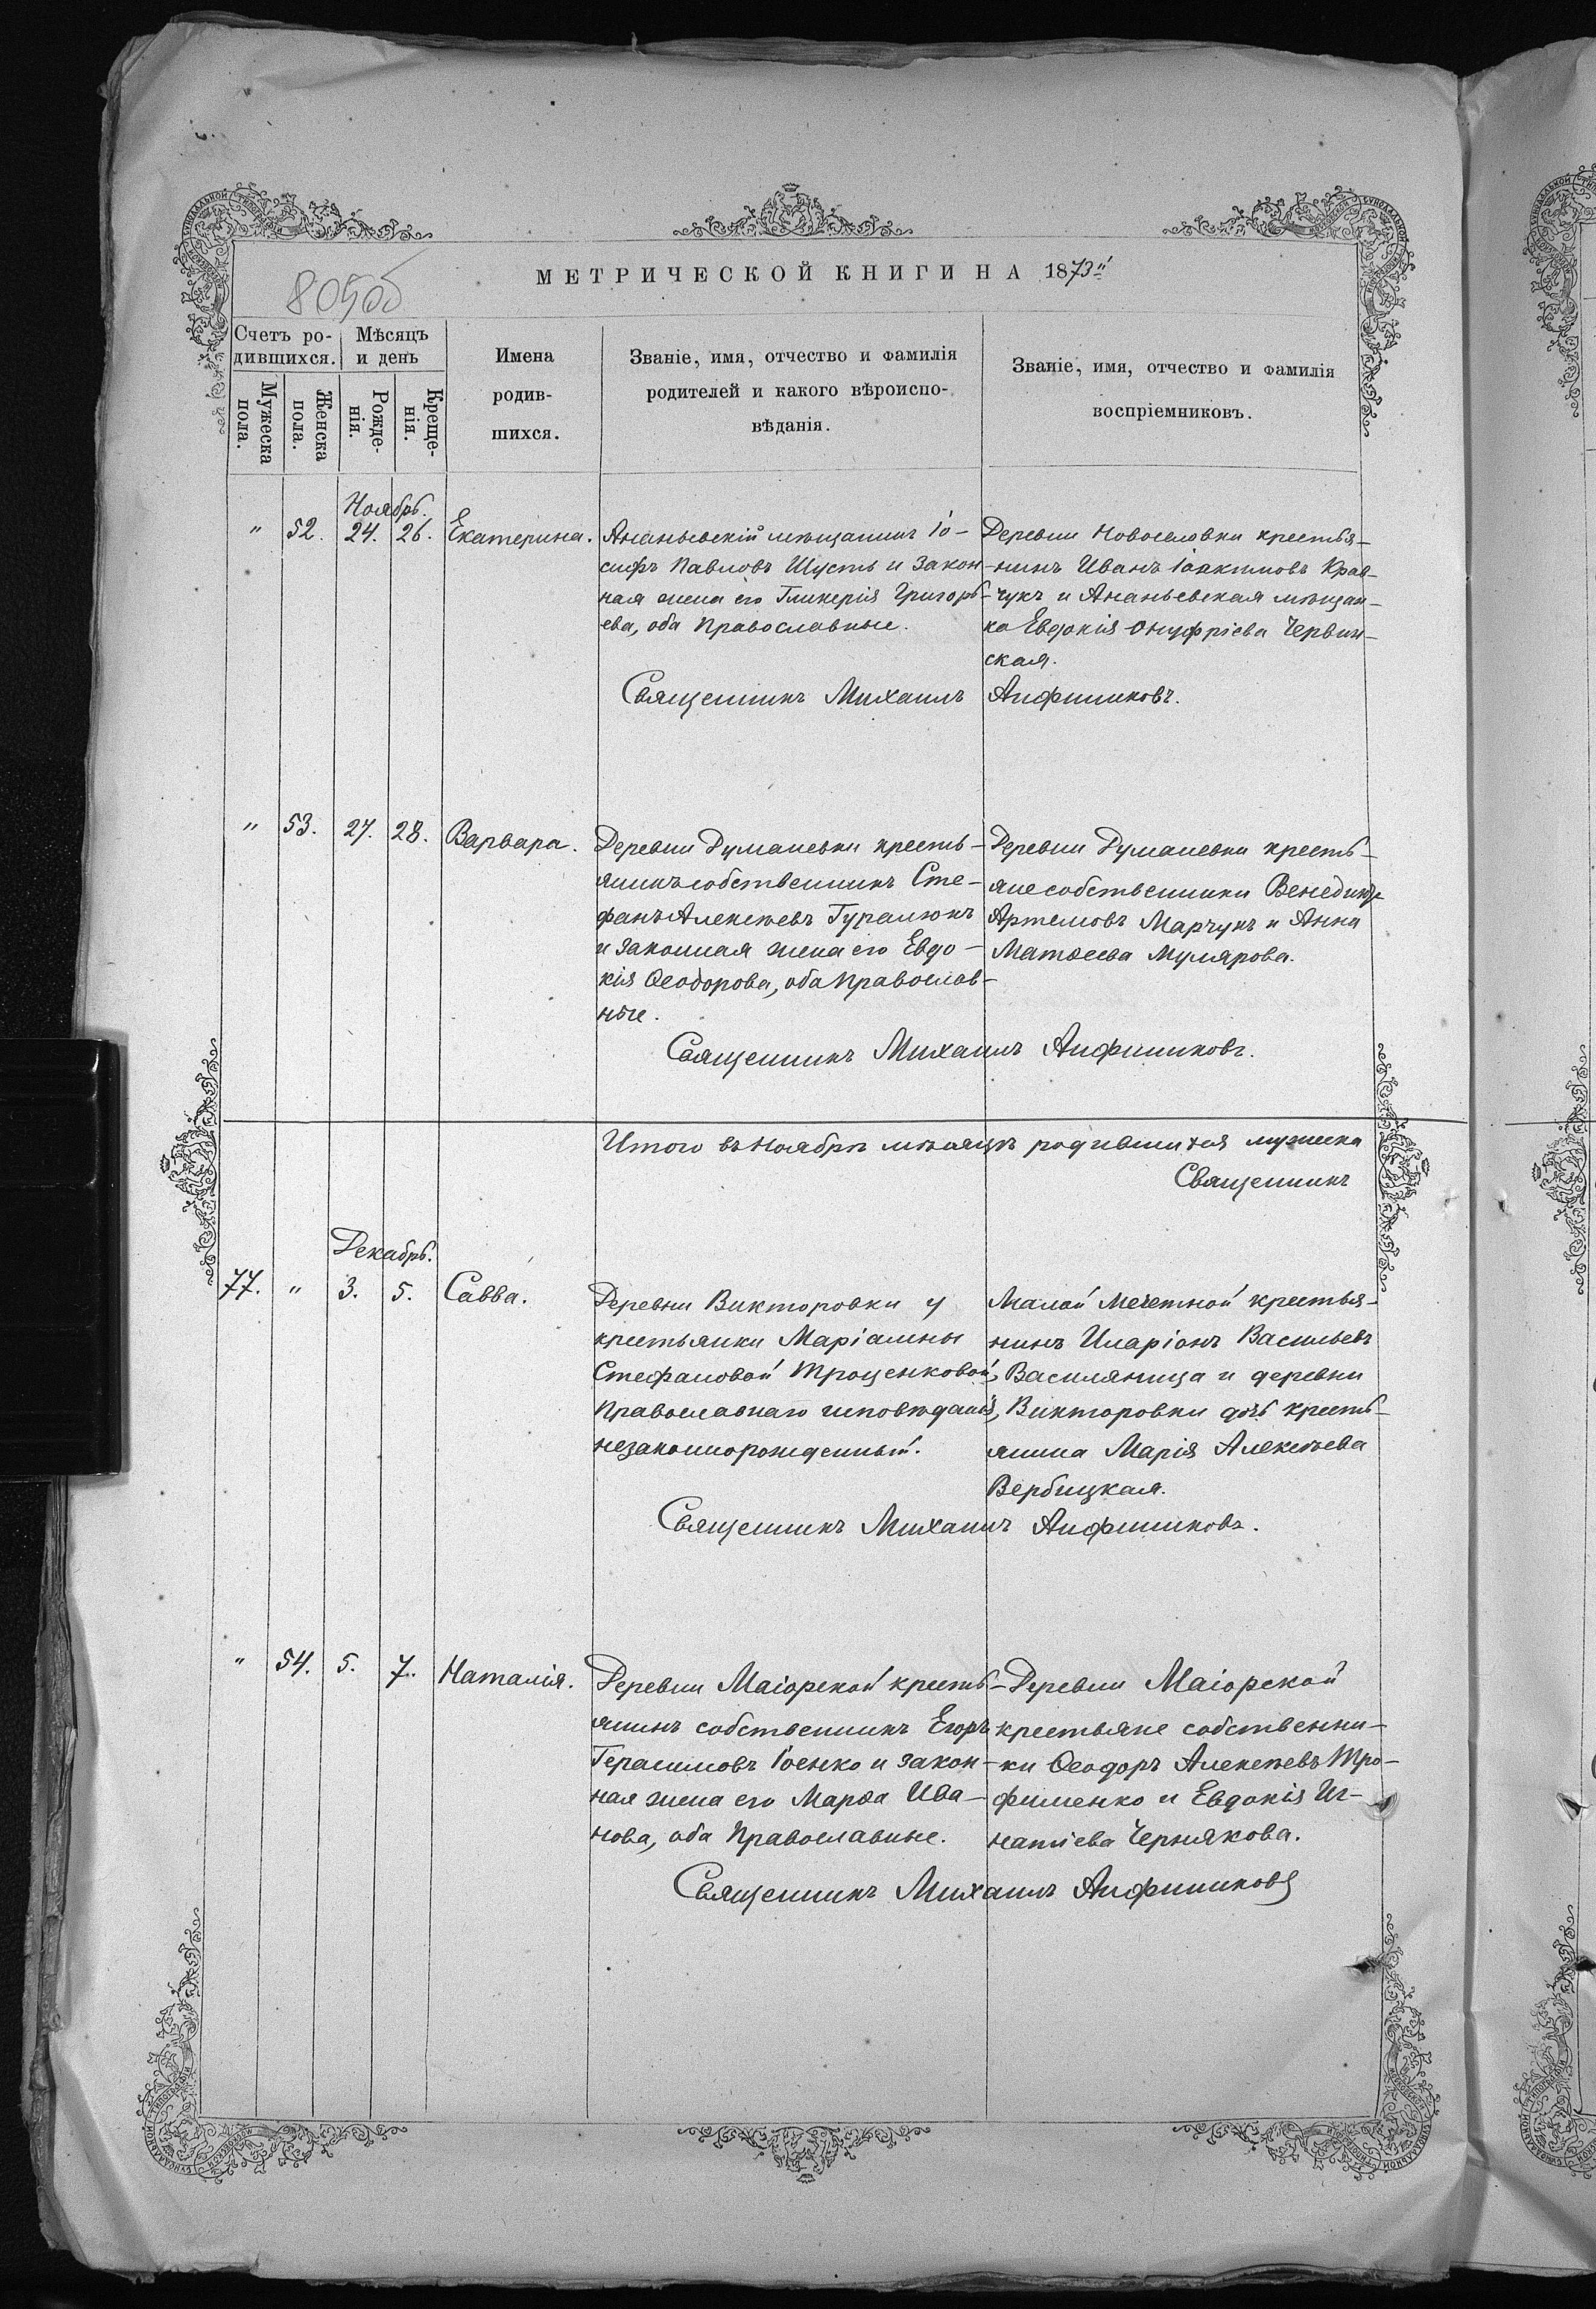 805об
МЕТРИЧЕСКОЙ КНИГИ НА 1873й
Счетъ ро-
дившихся.
Мужеска
пола.
Женска
пола.
Мѣсяцъ
и день
Рожде-
нія.
Креще-
нія.
Имена
родив-
шихся.
Званіе, имя, отчество и фамилія
родителей и какого вѣроиспо-
вѣданія.
Званіе, имя, отчество и фамилія
воспріемниковъ.
Ноябрь.
" 52. 24. 26. Екатерина.
Ананьевскій мѣщанинъ Іо-
сифъ Павловъ Шусть и закон-
ная жена его Гликерія Григорь-
ева, оба православные.
Деревни Новоселовки крестья-
нинъ Иванъ Іоакимовъ Крав-
чукъ и Ананьевская мѣщан-
ка Евдокія Онуфріева Червин-
ская.
Священникъ Михаилъ Анфиниковъ.
" 53. 27. 28. Варвара.
Деревни Думаневки кресть-
янинъ собственникъ Сте-
фанъ Алексѣевъ Гуралюкъ
и законная жена его Евдо-
кія Ѳеодорова, оба православ-
ные.
Деревни Думаневки кресть-
яне собственники Венедиктъ
Артемовъ Марчукъ и Анна
Матѳеева Мулярова.
Священникъ Михаилъ Анфиниковъ.
Итого въ Ноябрѣ мѣсяцѣ родившихся мужеска
Священникъ
Декабрь.
77. " 3. 5. Савва.
Деревни Викторовки у
крестьянки Маріанны
Стефановой Троценковой,
православнаго исповѣданія,
незаконнорожденный.
Малой Мечетной крестья-
нинъ Иларіонъ Васильевъ
Василяница и деревни
Викторовки дочь кресть-
янина Марія Алексѣева
Вербицкая.
Священникъ Михаилъ Анфиниковъ.
" 54. 5. 7. Наталія.
Деревни Маіорской кресть-
янинъ собственникъ Егоръ
Герасимовъ Іоенко и закон-
ная жена его Марѳа Ива-
нова, оба православные.
Деревни Маіорской
крестьяне собственни-
ки Ѳеодоръ Алексѣевъ Тро-
фименко и Евдокія Иг-
натіева Чернякова.
Священникъ Михаилъ Анфиниковъ